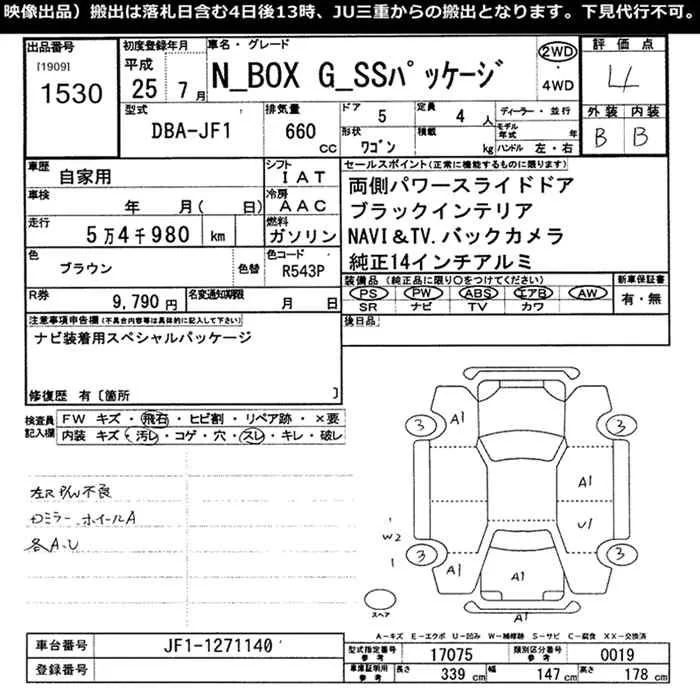 映像出品）搬出は落札日含む4日後13時、JU三重からの搬出となります。下見代行不可。
出品番号
[1909]
1530
初度登録年月
平成
25 7 月
車名・グレード
N_BOX G_SSパッケージ
2WD
・
4WD
評価点
4
型式
DBA-JF1
排気量
660
CC
ドア
5
定員
4 人
ディーラー・並行
モデル年式 年
形状
ワゴン
積載
kg
ハンドル 左・右
外装 内装
B B
車歴
自家用
シフト
IAT
車検
年 月( 日)
冷房
AAC
走行
5万4千980 km
燃料
ガソリン
色
ブラウン
色替
色コード
R543P
R券
9,790 円
名変通知期限
月 日
セールスポイント(正常に機能するものに限ります)
両側パワースライドドア
ブラックインテリア
NAVI&TV.バックカメラ
純正14インチアルミ
装備品 (純正品に限り○をつけてください)
PS・PW・ABS・エアB・AW
SR ナビ TV カワ
新車保証書
有・無
後日品
注意事項申告欄(不具合内容等は具体的に記入して下さい)
ナビ装着用スペシャルパッケージ
修復歴 有〔箇所 〕
検査員
記入欄
FW キズ・飛石・ヒビ割・リペア跡・×要
内装 キズ・汚レ・コゲ・穴・スレ・キレ・破レ
左R P/W不良
ロミラー ホイールA
各A・U
A1
3
3
A1
U1
W2
3
3
A1
A1
A1
スペア
A−キズ E−エクボ U−凹み W−補修跡 S−サビ C−腐食 XX−交換済
車台番号
JF1-1271140
登録番号
型式指定番号
参考
17075
類別区分番号
参考
0019
車庫証明用
参考
長さ
339 cm
幅
147 cm
高さ
178 cm